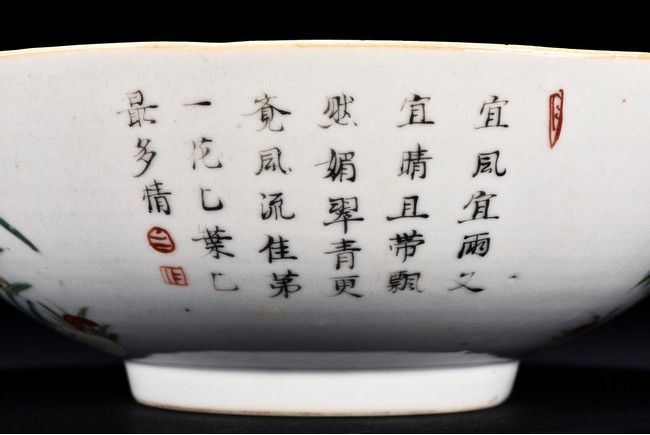 宜風宜雨又
宜晴且帶飄
然媚翠青更
覓風流佳弟
一花乙葉乙
最多情